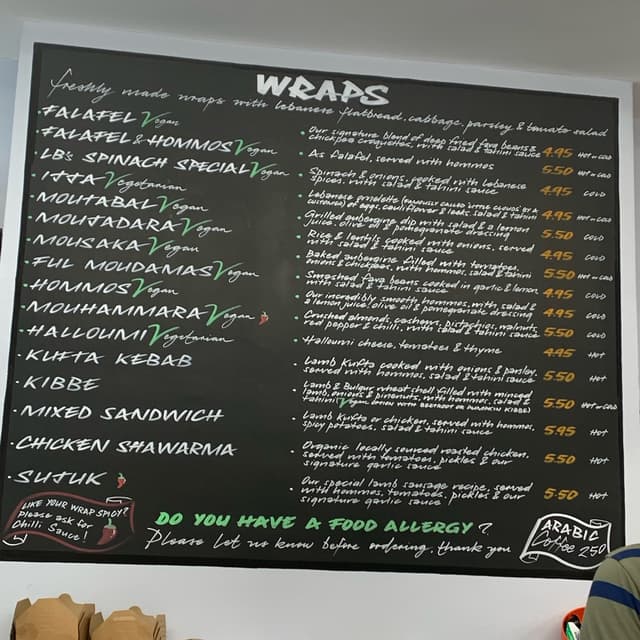 WRAPS
freshly made wraps with lebanese flatbread, cabbage, parsley & tomato salad
• FALAFEL Vegan
Our signature blend of deep fried fava beans &
chickpea croquettes, with salad & tahini sauce 4.95 HOT OR COLD
• FALAFEL & HOMMOS Vegan
• As falafel, served with hommos 5.50 HOT OR COLD
• LB's SPINACH SPECIAL Vegan
• Spinach & onions, cooked with Lebanese
spices, with salad & tahini sauce 4.95 COLD
• IJJA Vegetarian
Lebanese omelette
of eggs, cauliflower & leeks, salad & tahini 4.95 HOT OR COLD
• MOUTABAL Vegan
• Grilled aubergine dip with salad & a lemon
juice, olive oil & pomegranate dressing 5.50 COLD
• MOUJADARA Vegan
• Rice & lentils cooked with onions, served
with salad & tahini sauce 4.95 COLD
• MOUSAKA Vegan
• Baked aubergine filled with tomatoes,
onions & chickpeas, with hommos, salad & tahini 5.50 HOT OR COLD
• FUL MOUDAMAS Vegan
• Smashed fava beans cooked in garlic & lemon
with salad & tahini sauce 4.95 COLD
• HOMMOS Vegan
• Our incredibly smooth hommos, with salad &
a lemon juice, olive oil & pomegranate dressing 4.95 COLD
• MOUHAMMARA Vegan
• Crushed almonds, cashews, pistachios, walnuts,
red pepper & chilli, with salad & tahini sauce 5.50 COLD
• HALLOUMI Vegetarian
• Halloumi cheese, tomatoes & thyme 4.95 HOT
• KUFTA KEBAB
• Lamb Kufta cooked with onions & parsley,
served with hommos, salad & tahini sauce 5.50 HOT
• KIBBE
• Lamb & Bulgur wheat shell filled with minced
lamb, onions & pinenuts, with hommos, salad &
tahini 5.50 HOT OR COLD
• MIXED SANDWICH
• Lamb Kufta or chicken, served with hommos,
spicy potatoes, salad & tahini sauce 5.95 HOT
• CHICKEN SHAWARMA
• Organic locally sourced roasted chicken,
served with tomatoes, pickles & our
signature garlic sauce 5.50 HOT
• SUJUK
• Our special lamb sausage recipe, served
with hommos, tomatoes, pickles & our
signature garlic sauce 5.50 HOT
LIKE YOUR WRAP SPICY?
Please ask for
Chilli Sauce!
DO YOU HAVE A FOOD ALLERGY?
Please let us know before ordering, thank you
ARABIC
Coffee 2.50